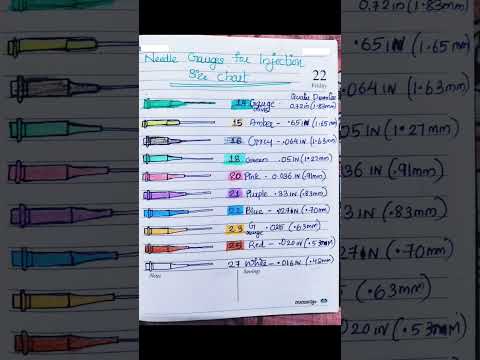 Needle Gauges for Injection
Size Chart
22
Friday
Outer Diameter
14 Gauge 0.72in (1.83mm)
15 Amber - .65IN (1.65mm)
16 Grey - .064IN (1.63mm)
18 Green .05IN (1.27mm)
20 Pink - 0.036IN (.91mm)
21 Purple .33IN (.83mm)
22 Blue - .027IN (.70mm)
23 G .025 (.63mm)
25 Red - .020IN (.53mm)
27 White - .016IN (.42mm)
Notes
Savings
0.72in (1.83mm)
.65IN (1.65mm)
.064IN (1.63mm)
.05IN (1.27mm)
.036IN (.91mm)
.33IN (.83mm)
.027IN (.70mm)
(.63mm)
.020IN (.53mm)